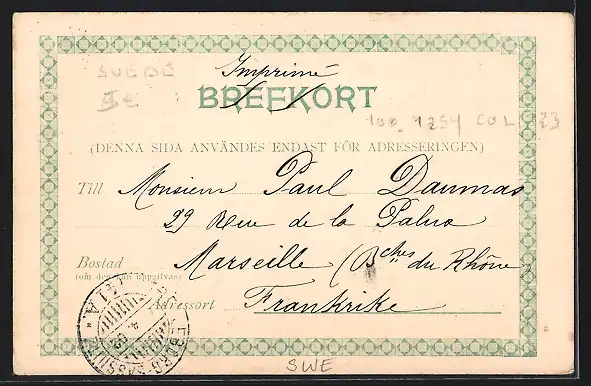 Imprimé
SUEDE
BREFKORT
(DENNA SIDA ANVÄNDES ENDAST FÖR ADRESSERINGEN)
Till Monsieur Paul Daumas
29 Rue de la Palud
Bostad Marseille (Bches du Rhône
(om den kan uppgifvas)
Adressort Frankrike
SWE